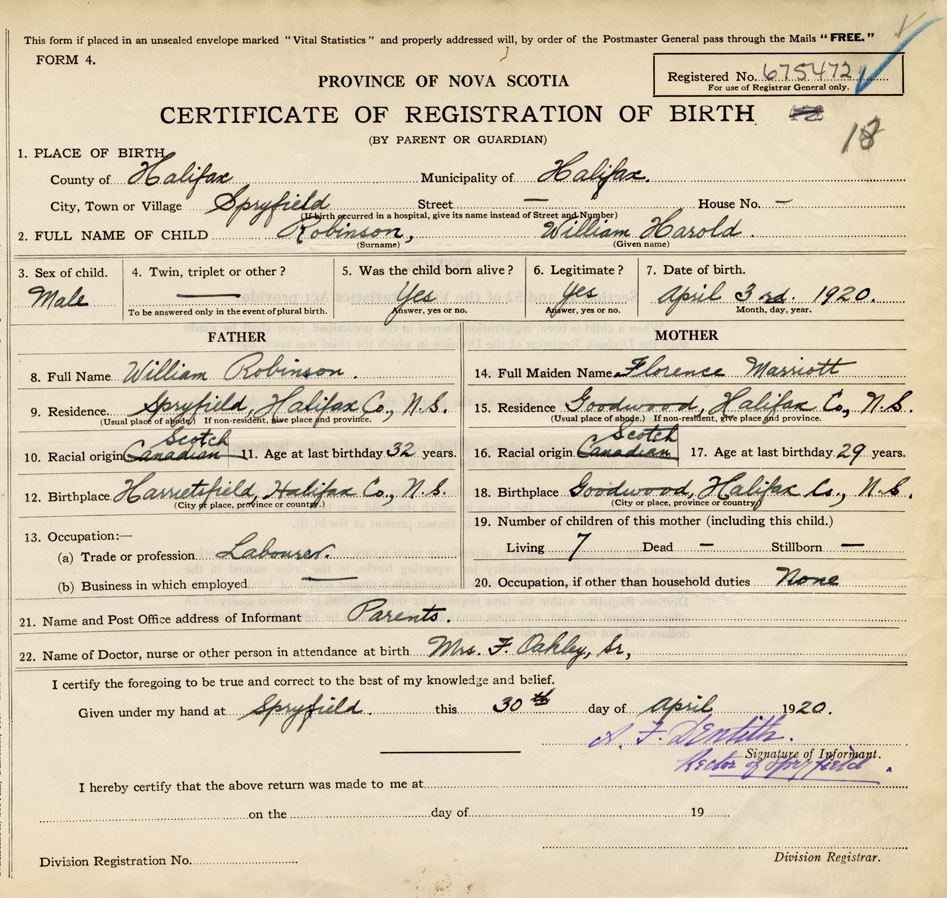 This form if placed in an unsealed envelope marked "Vital Statistics" and properly addressed will, by order of the Postmaster General pass through the Mails "FREE."
FORM 4.
Registered No. 675472
For use of Registrar General only.
PROVINCE OF NOVA SCOTIA
CERTIFICATE OF REGISTRATION OF BIRTH
18
(BY PARENT OR GUARDIAN)
1. PLACE OF BIRTH
County of Halifax Municipality of Halifax.
City, Town or Village Spryfield Street — House No. —
(If birth occurred in a hospital, give its name instead of Street and Number)
2. FULL NAME OF CHILD Robinson, William Harold.
(Surname) (Given name)
3. Sex of child. 4. Twin, triplet or other? 5. Was the child born alive? 6. Legitimate? 7. Date of birth.
Male — Yes Yes April 3rd. 1920.
To be answered only in the event of plural birth. Answer, yes or no. Answer, yes or no. Month, day, year.
FATHER
8. Full Name William Robinson.
9. Residence. Spryfield, Halifax Co., N.S.
(Usual place of abode.) If non-resident, give place and province.
Scotch
10. Racial origin Canadian 11. Age at last birthday 32 years.
12. Birthplace Harrietsfield, Halifax Co., N.S.
(City or place, province or country.)
13. Occupation:—
(a) Trade or profession Labourer.
(b) Business in which employed —
MOTHER
14. Full Maiden Name Florence Marriott
15. Residence Goodwood, Halifax Co., N.S.
(Usual place of abode.) If non-resident, give place and province.
Scotch
16. Racial origin Canadian 17. Age at last birthday 29 years.
18. Birthplace Goodwood, Halifax Co., N.S.
(City or place, province or country)
19. Number of children of this mother (including this child.)
Living 7 Dead — Stillborn —
20. Occupation, if other than household duties None
21. Name and Post Office address of Informant Parents.
22. Name of Doctor, nurse or other person in attendance at birth Mrs. F. Oakley, Sr,
I certify the foregoing to be true and correct to the best of my knowledge and belief.
Given under my hand at Spryfield. this 30th day of April 1920.
A. F. Dentith.
Signature of Informant.
Rector of Spryfield.
I hereby certify that the above return was made to me at
on the day of 19
Division Registration No.
Division Registrar.